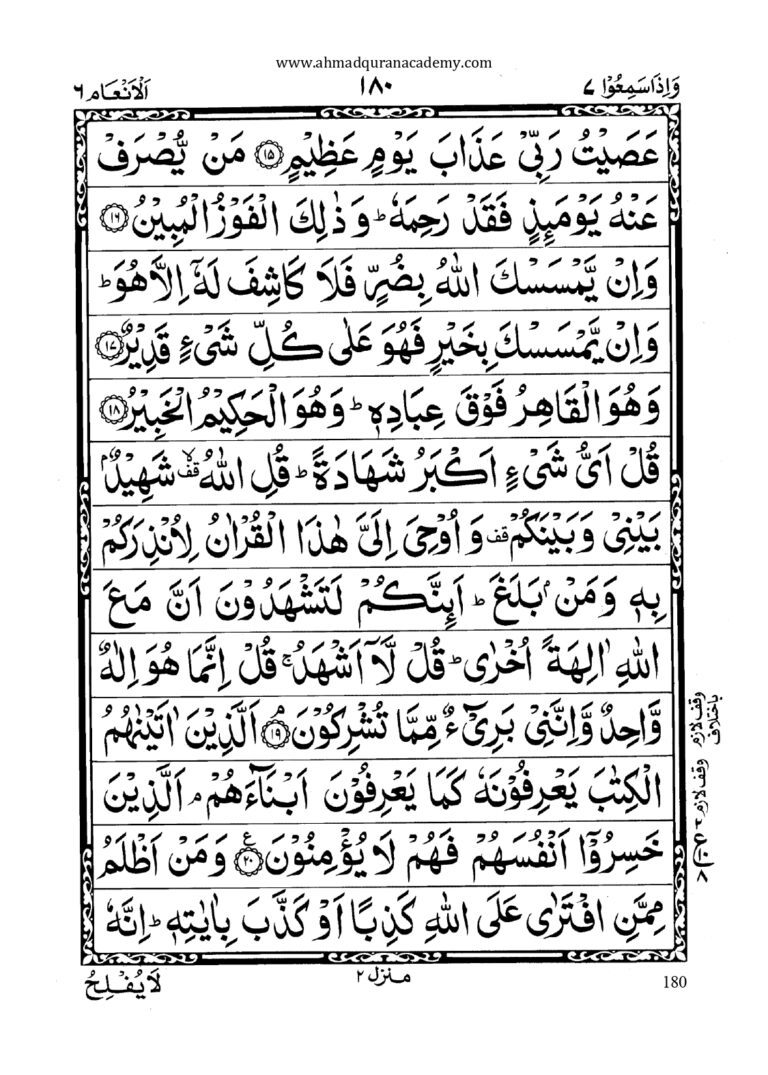 www.ahmadquranacademy.com
وَاِذَاسَمِعُوْا ٧
١٨٠
اَلْاَنْعَام ٦
عَصَيْتُ رَبِّىْ عَذَابَ يَوْمٍ عَظِيْمٍ ﴿١٥﴾ مَنْ يُّصْرَفْ
عَنْهُ يَوْمَىِٕذٍ فَقَدْ رَحِمَهٗ ؕ وَ ذٰلِكَ الْفَوْزُ الْمُبِيْنُ ﴿١٦﴾
وَاِنْ يَّمْسَسْكَ اللّٰهُ بِضُرٍّ فَلَا كَاشِفَ لَهٗۤ اِلَّا هُوَ ؕ
وَاِنْ يَّمْسَسْكَ بِخَيْرٍ فَهُوَ عَلٰى كُلِّ شَىْءٍ قَدِيْرٌ ﴿١٧﴾
وَهُوَ الْقَاهِرُ فَوْقَ عِبَادِهٖ ؕ وَهُوَ الْحَكِيْمُ الْخَبِيْرُ ﴿١٨﴾
قُلْ اَىُّ شَىْءٍ اَكْبَرُ شَهَادَةً ؕ قُلِ اللّٰهُ قف لا شَهِيْدٌۢ
بَيْنِىْ وَبَيْنَكُمْ قف وَ اُوْحِىَ اِلَىَّ هٰذَا الْقُرْاٰنُ لِاُنْذِرَكُمْ
بِهٖ وَمَنْۢ بَلَغَ ؕ اَىِٕنَّكُمْ لَتَشْهَدُوْنَ اَنَّ مَعَ
اللّٰهِ اٰلِهَةً اُخْرٰى ؕ قُلْ لَّاۤ اَشْهَدُ ۚ قُلْ اِنَّمَا هُوَ اِلٰهٌ
وَّاحِدٌ وَّاِنَّنِىْ بَرِىْٓءٌ مِّمَّا تُشْرِكُوْنَ ﴿١٩﴾ۘ اَلَّذِيْنَ اٰتَيْنٰهُمُ
الْكِتٰبَ يَعْرِفُوْنَهٗ كَمَا يَعْرِفُوْنَ اَبْنَآءَهُمْ ۘ اَلَّذِيْنَ
خَسِرُوْۤا اَنْفُسَهُمْ فَهُمْ لَا يُؤْمِنُوْنَ ﴿٢٠﴾ع وَمَنْ اَظْلَمُ
مِمَّنِ افْتَرٰى عَلَى اللّٰهِ كَذِبًا اَوْ كَذَّبَ بِاٰيٰتِهٖ ؕ اِنَّهٗ
وقف لازم باختلاف
وقف لازم
لَا يُفْلِحُ
منزل ٢
180